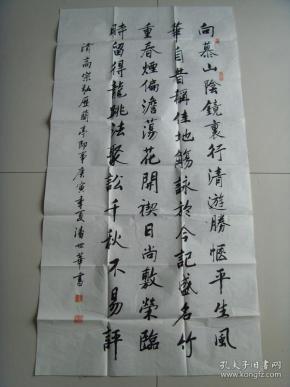 向慕山陰鏡裏行清遊勝愜平生風
華自昔稱佳地觴詠於今記盛名竹
重春煙偏澹蕩花開禊日尚敷榮臨
時留得龍跳法聚訟千秋不易評
清高宗弘歷蘭亭即事庚寅季夏潘世華書
孔夫子旧书网